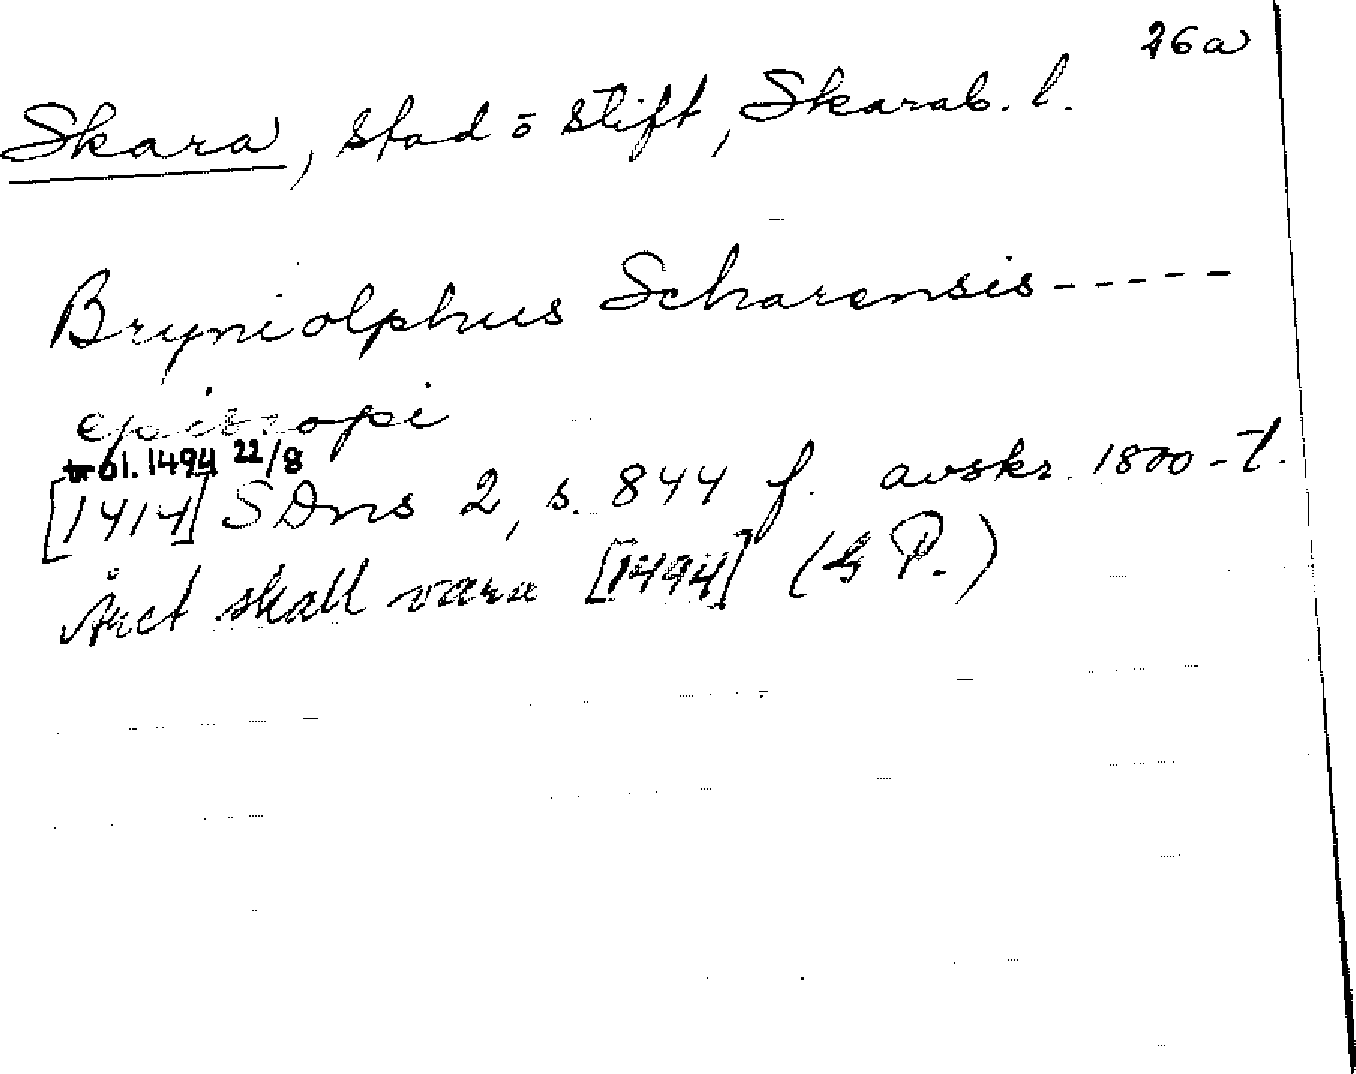 26a
Skara, stad o stift, Skarab. l.
Bryniolphus Scharensis-----
episcopi
tr bl. 1494 22/8
[1414] SDns 2, s. 844 f. avskr. 1800-t.
Året skall vara [1494] (G P.)